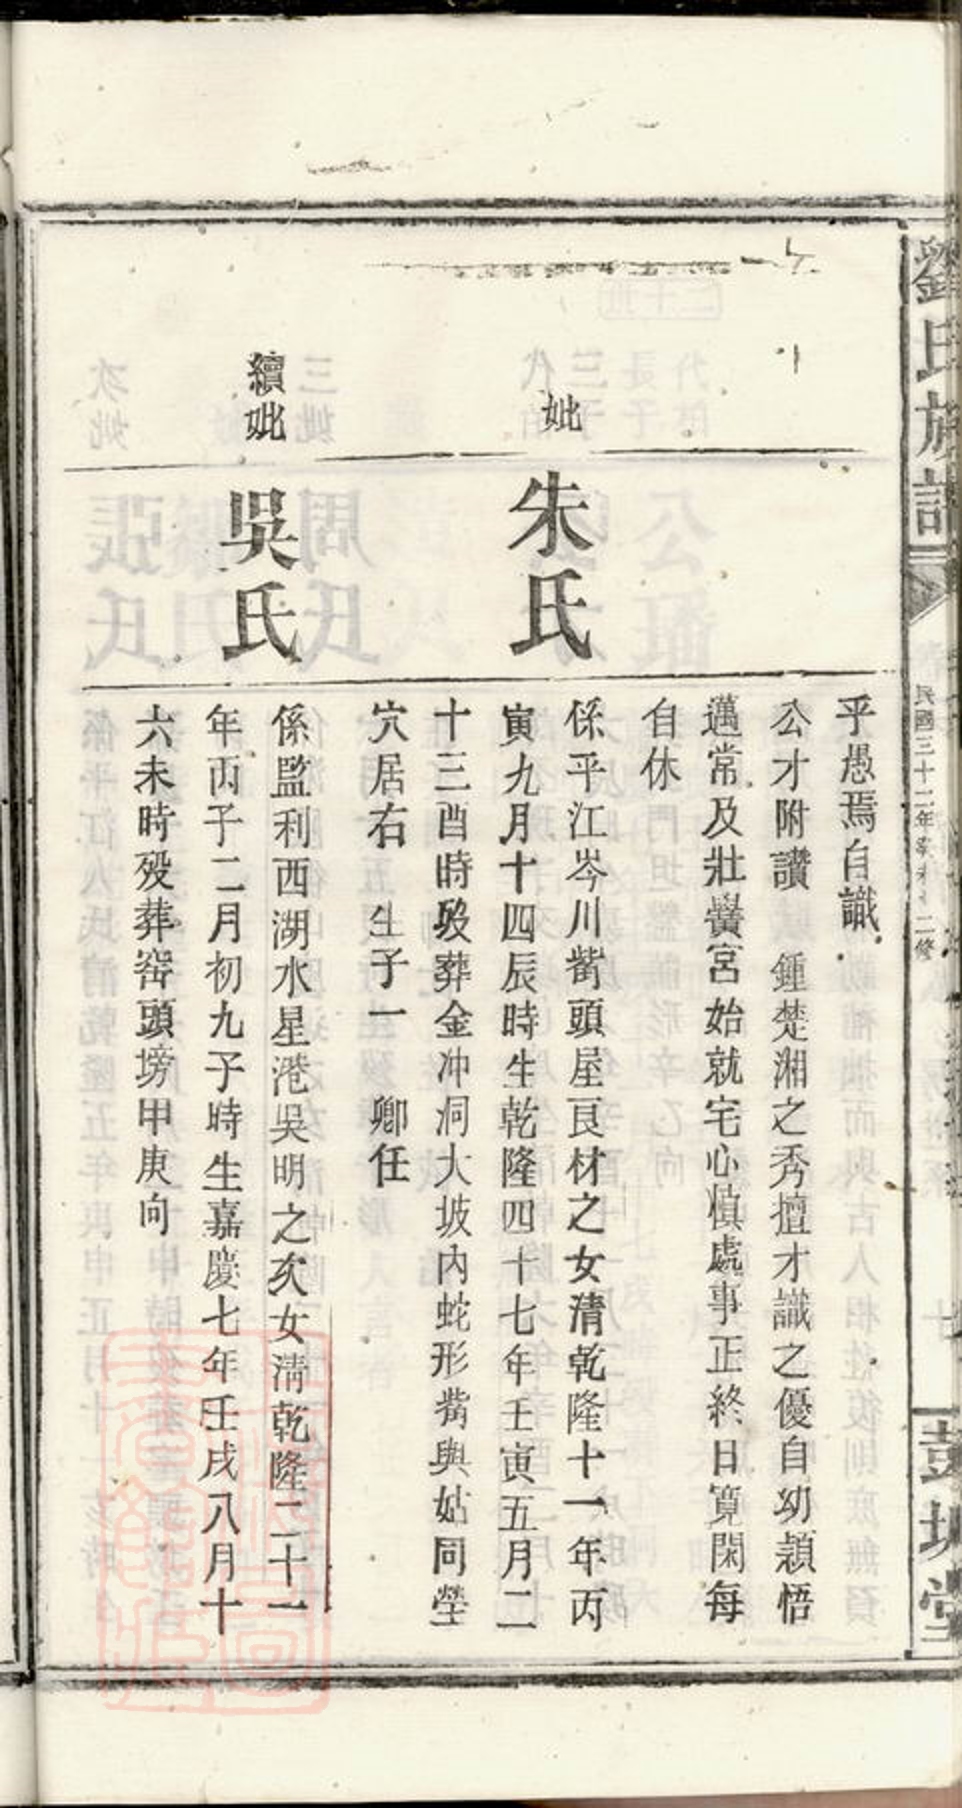 劉氏族譜
民國三十二年癸未 二修
彭城堂
乎愚焉自識
公才附讚 鍾楚湘之秀擅才識之優自幼穎悟
邁常及壯黌宮始就宅心慎處事正終日寬閑每
自休
妣
朱氏
係平江岑川嘴頭屋艮材之女清乾隆十一年丙
寅九月十四辰時生乾隆四十七年壬寅五月二
十三酉時歿葬金冲洞大坡內蛇形嘴與姑同塋
穴居右 生子一 卿任
續妣
吳氏
係監利西湖水星港吳明之次女清乾隆二十一
年丙子二月初九子時生嘉慶七年壬戌八月十
六未時歿葬窰頭塝甲庚向